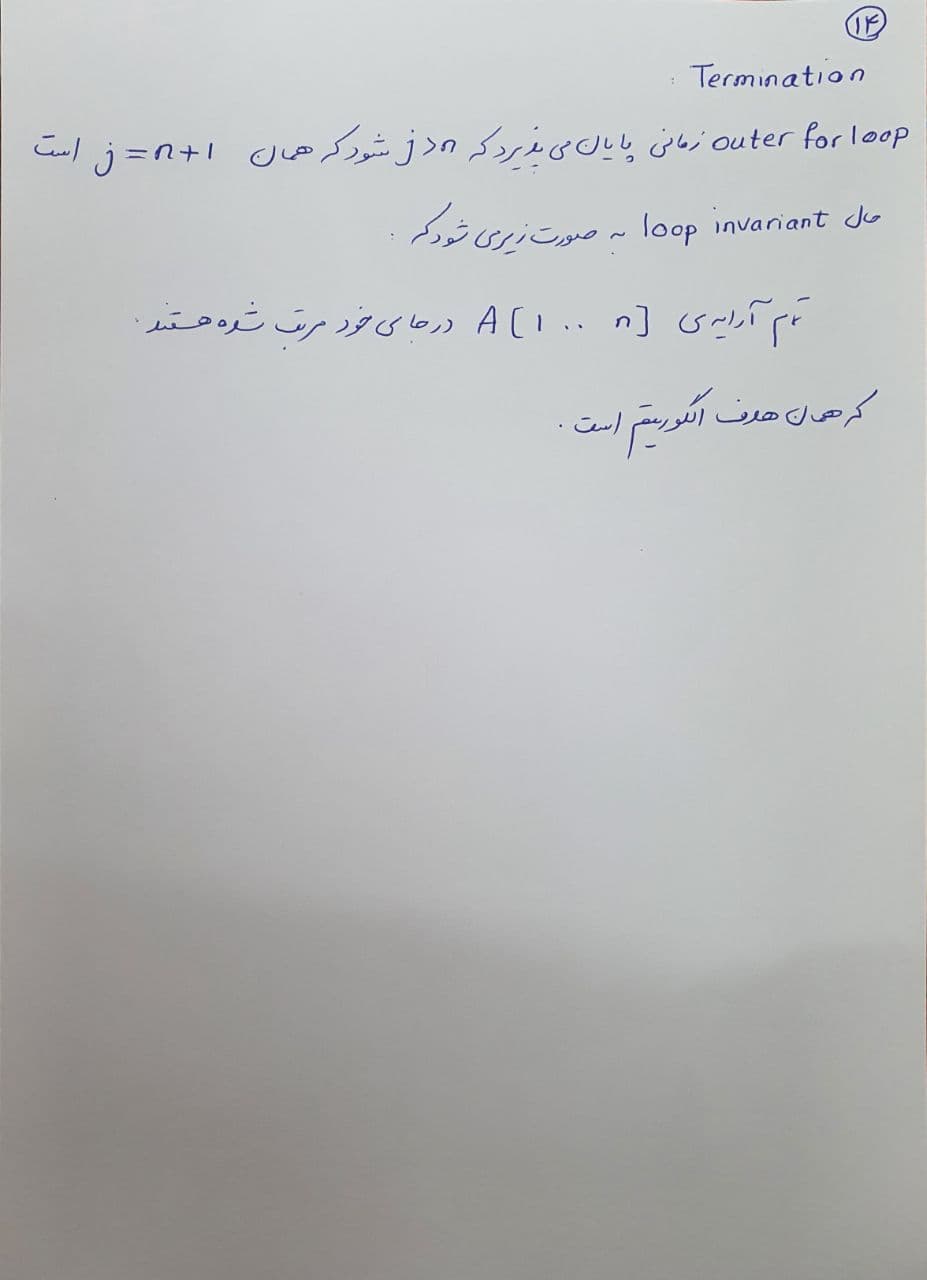 ۱۴
Termination :
outer for loop زمانی پایان می پذیرد که j>n شود که همان j=n+1 است
حال loop invariant به صورت زیر می شود که :
تمام آرایه ی A[1 .. n] در جای خود مرتب شده هستند .
که همان هدف الگوریتم است .